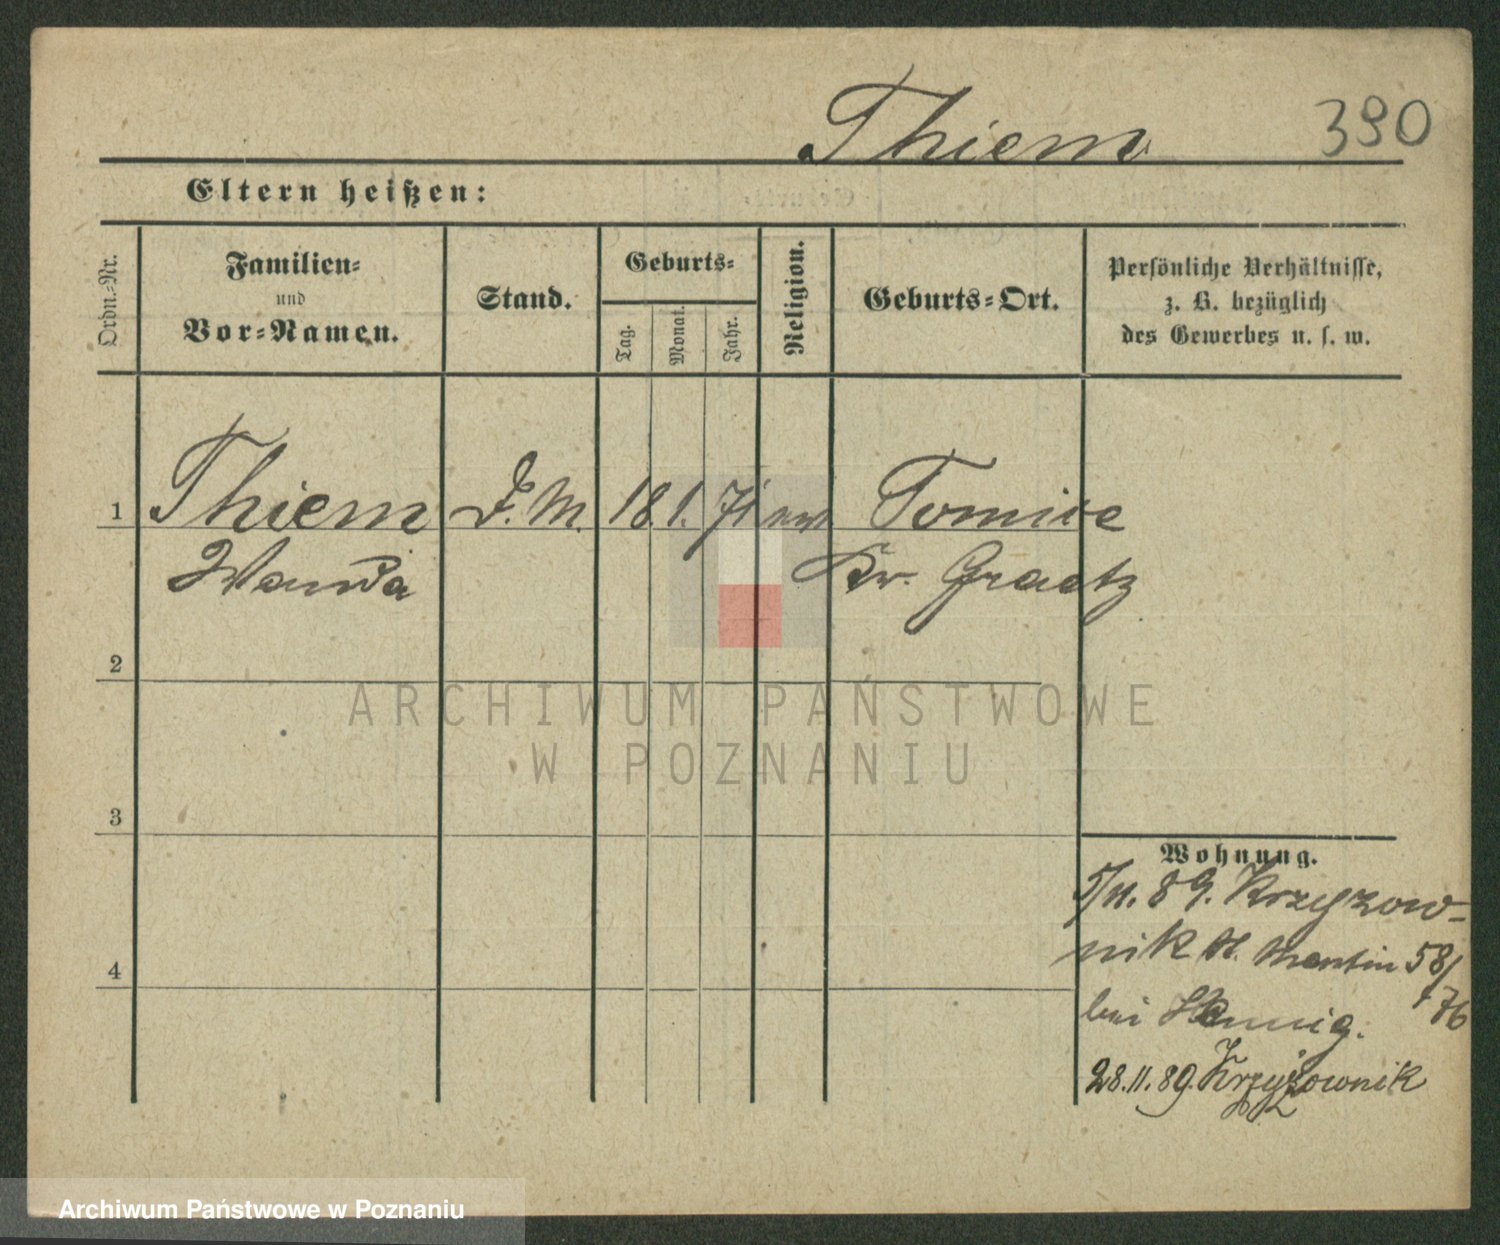 Thiem 390
Eltern heißen:
Ordn.-Nr.
Familien-
und
Vor-Namen.
Stand.
Geburts-
Tag.
Monat.
Jahr.
Religion.
Geburts-Ort.
Persönliche Verhältnisse,
z. B. bezüglich
des Gewerbes u. s. w.
1 Thiem D. M. 18. 1. 71 Tomice
Wanda Kr. Graetz
2
3
4
Wohnung.
5/11. 89. Krzyzow-
nik St. Martin 58/
76
bei Hennig.
28.11.89. Krzyżownik
ARCHIWUM PAŃSTWOWE
W POZNANIU
Archiwum Państwowe w Poznaniu